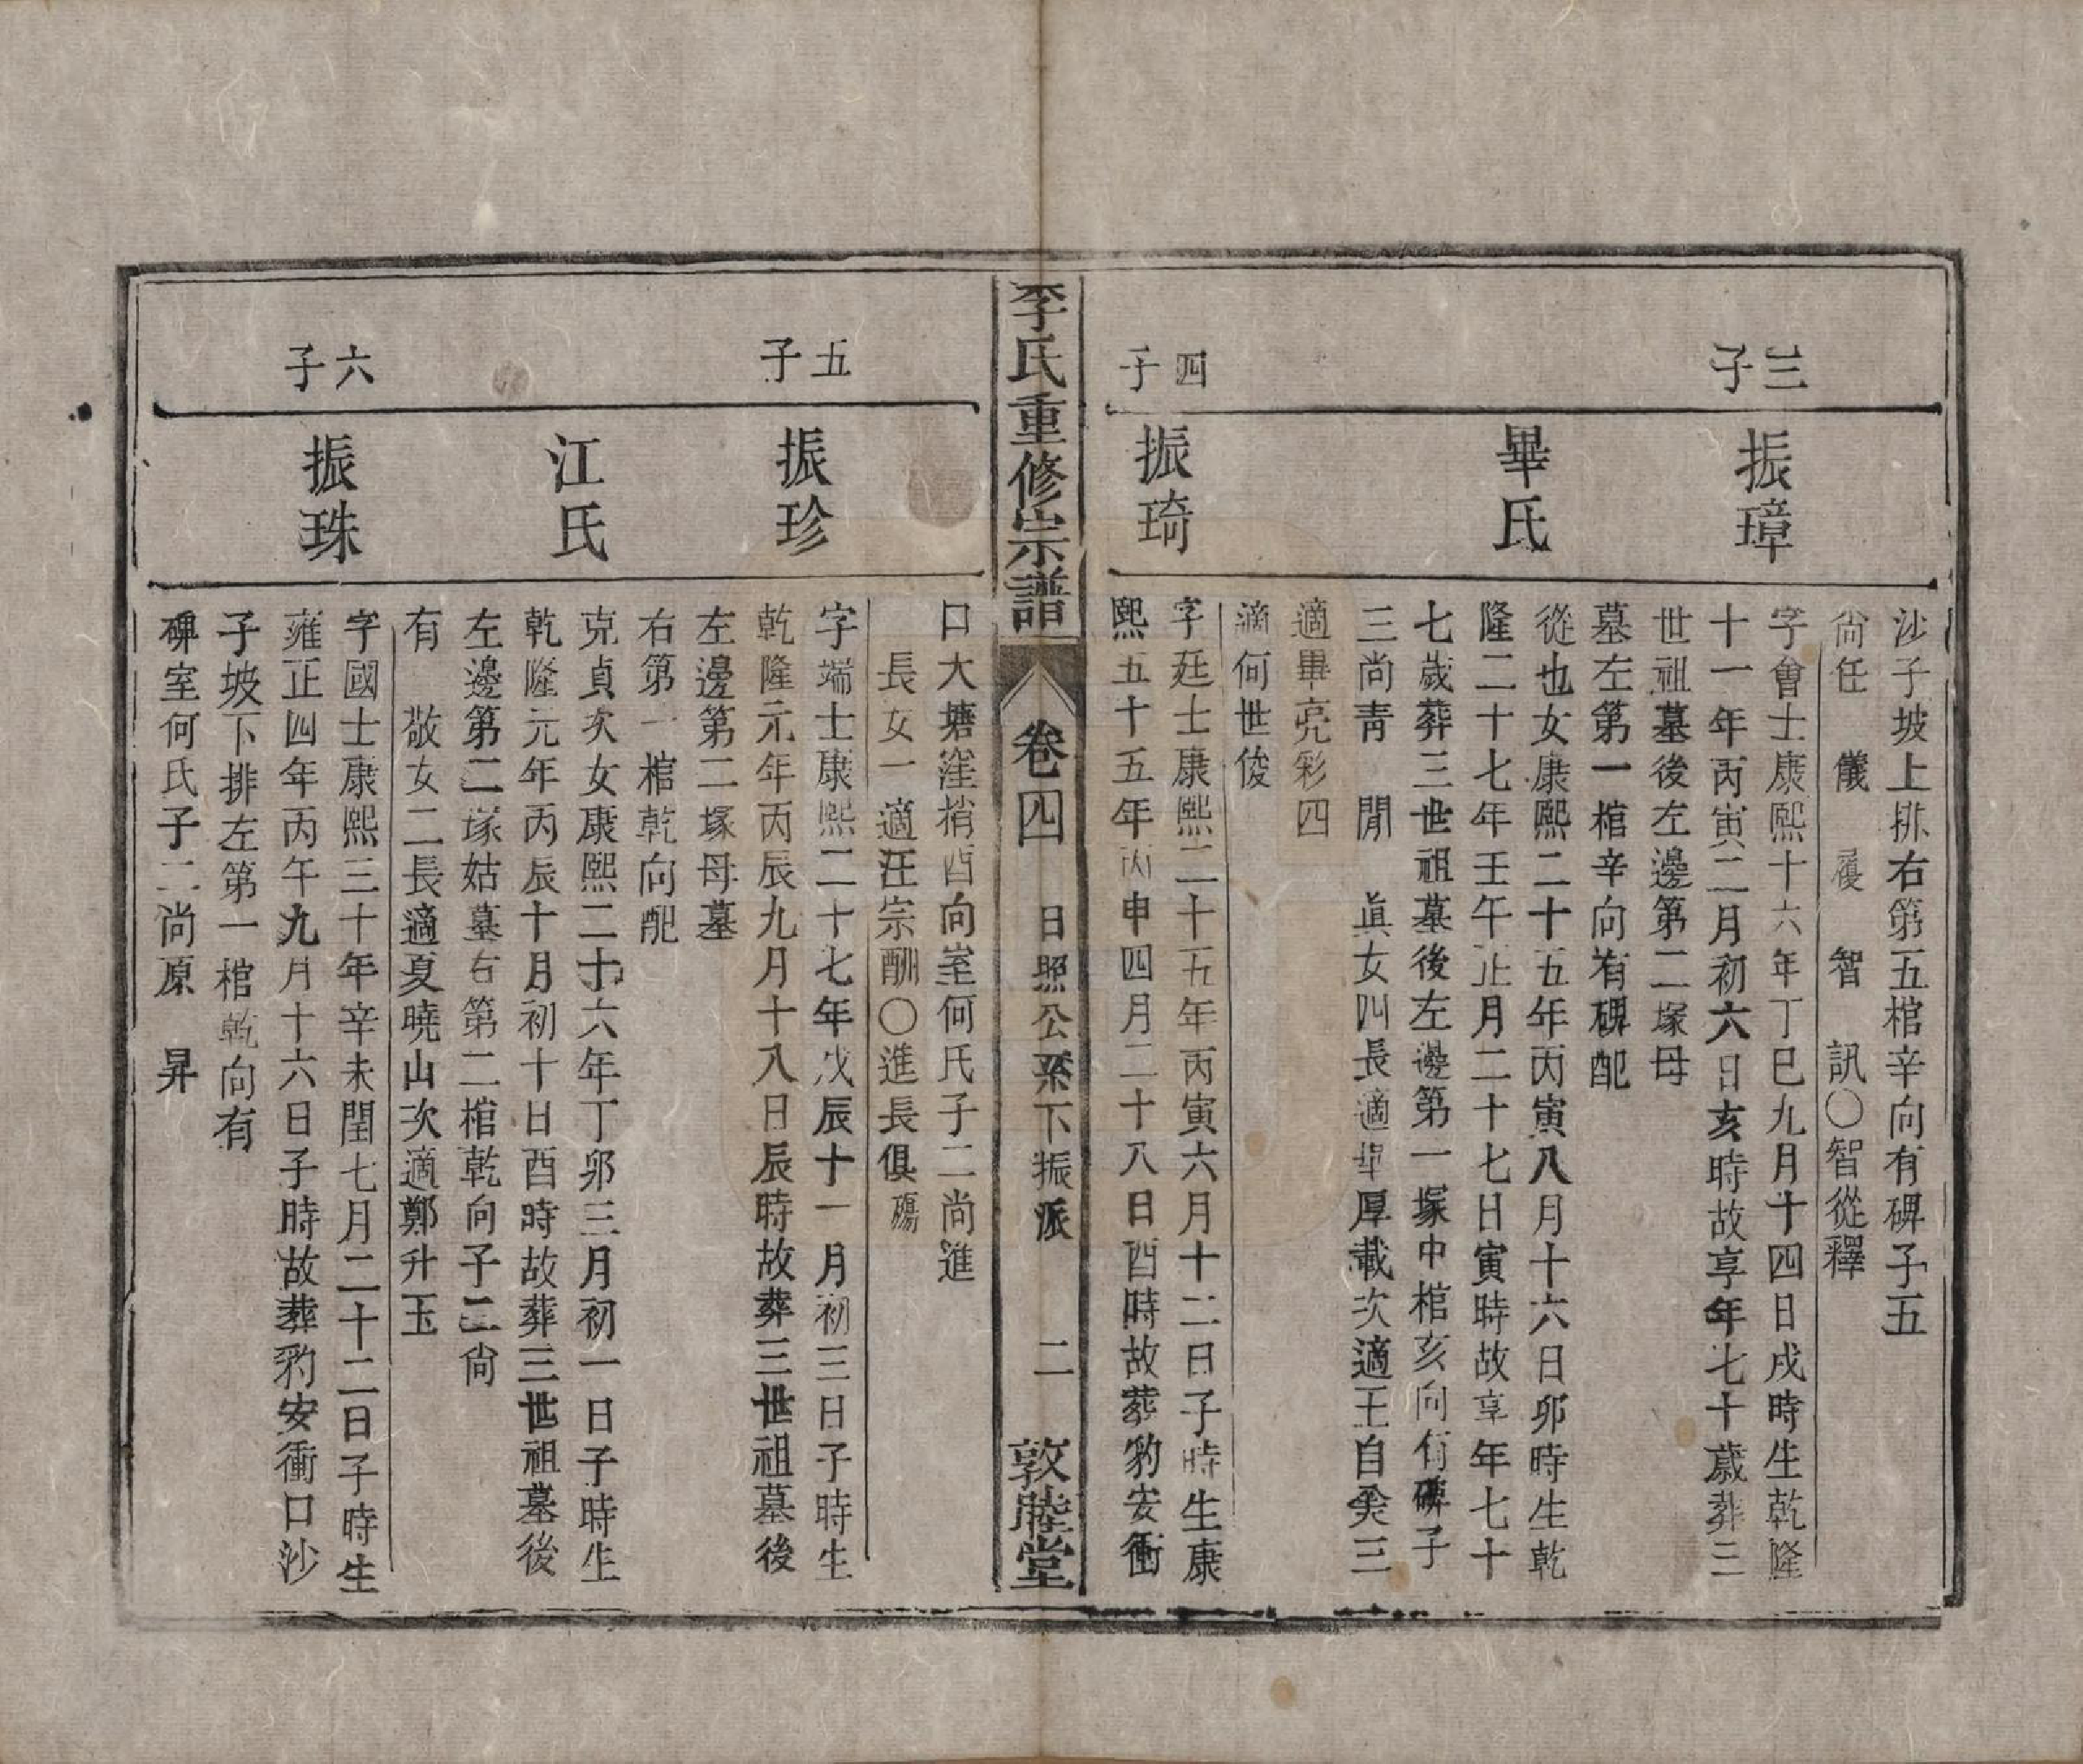 沙子坡上排右第五棺辛向有碑子五
尙任　儀　履　智　訊〇智從釋
三子
振璋
字曾士康熙十六年丁巳九月十四日戌時生乾隆
十一年丙寅二月初六日亥時故享年七十歲葬三
世祖墓後左邊第二塚母
墓左第一棺辛向有碑配
畢氏
從也女康熙二十五年丙寅八月十六日卯時生乾
隆二十七年壬午正月二十七日寅時故享年七十
七歲葬三世祖墓後左邊第一塚中棺亥向有碑子
三尚靑　閒　眞女四長適畢厚載次適王自癸三
適畢亮彩四
適何世俊
四子
振琦
字廷士康熙二十五年丙寅六月十二日子時生康
熙五十五年丙申四月二十八日酉時故葬豹安衝
李氏重修宗譜
卷四
日照公系下振派
二
敦睦堂
口大塘窪梢酉向室何氏子二尚進
長女一適汪宗酬〇進長俱殤
五子
振珍
字端士康熙二十七年戊辰十一月初三日子時生
乾隆元年丙辰九月十八日辰時故葬三世祖墓後
左邊第二塚母墓
右第一棺乾向配
江氏
克貞次女康熙二十六年丁卯三月初一日子時生
乾隆元年丙辰十月初十日酉時故葬三世祖墓後
左邊第二塚姑墓右第二棺乾向子二尙
有　敬女二長適夏曉山次適鄭升玉
六子
振珠
字國士康熙三十年辛未閏七月二十二日子時生
雍正四年丙午九月十六日子時故葬豹安衝口沙
子坡下排左第一棺乾向有
碑室何氏子二尚原　昇